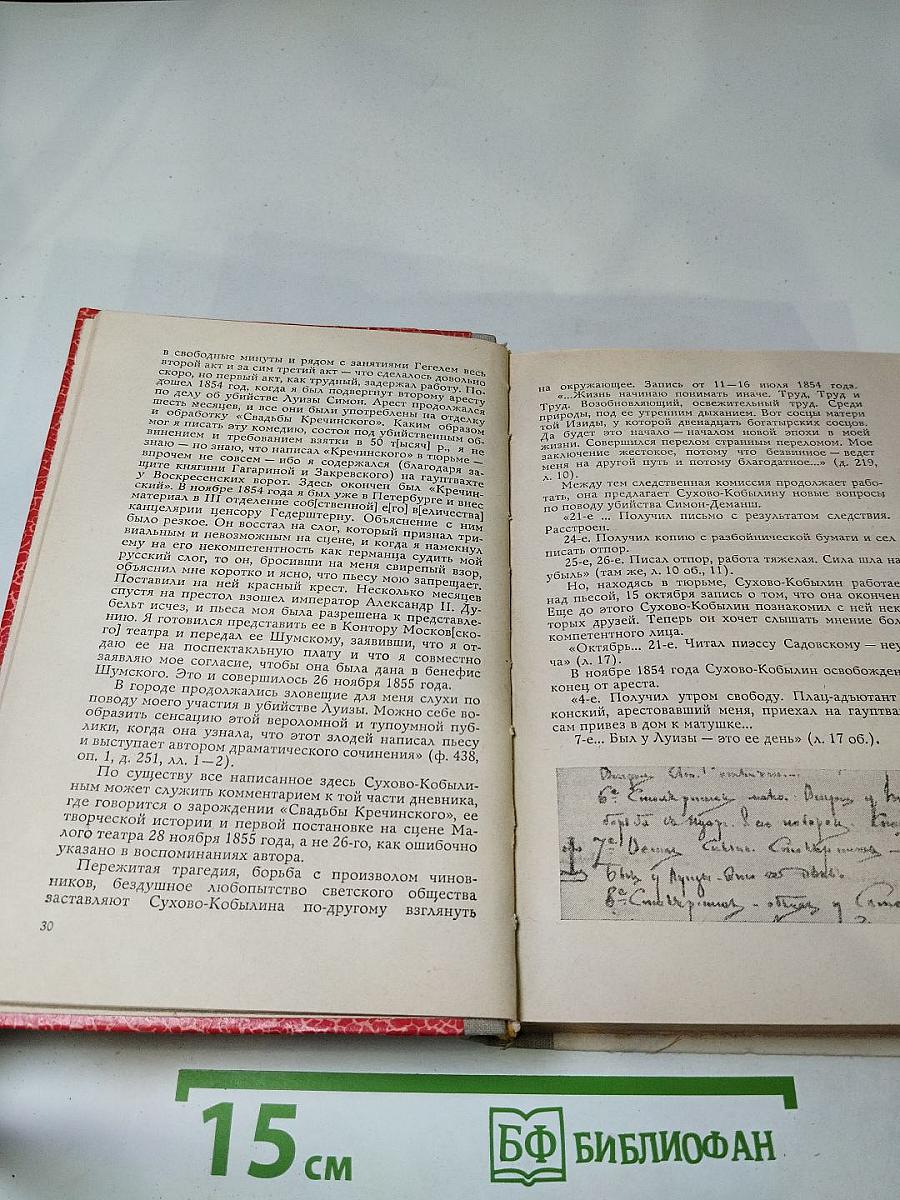 в свободные минуты и рядом с занятиями Гегелем весь
второй акт и за сим третий акт — что сделалось довольно
скоро, но первый акт, как трудный, задержал работу. По-
дошел 1854 год, когда я был подвергнут второму аресту
по делу об убийстве Луизы Симон. Арест продолжался
шесть месяцев, и все они были употреблены на отделку
и обработку «Свадьбы Кречинского». Каким образом
мог я писать эту комедию, состоя под убийственным об-
винением и требованием взятки в 50 т[ысяч] р., я не
знаю — но знаю, что написал «Кречинского» в тюрьме —
впрочем не совсем — ибо я содержался (благодаря за-
щите княгини Гагариной и Закревского) на гауптвахте
у Воскресенских ворот. Здесь окончен был «Кречин-
ский». В ноябре 1854 года я был уже в Петербурге и внес
материал в III отделение соб[ственной] е[го] в[еличества]
канцелярии цензору Гедерштерну. Объяснение с ним
было резкое. Он восстал на слог, который признал три-
виальным и невозможным на сцене, и когда я намекнул
ему на его некомпетентность как германца судить мой
русский слог, то он, бросивши на меня свирепый взор,
объяснил мне коротко и ясно, что пьесу мою запрещает.
Поставили на ней красный крест. Несколько месяцев
спустя на престол взошел император Александр II. Ду-
бельт исчез, и пьеса моя была разрешена к представле-
нию. Я готовился представить ее в Контору Москов[ско-
го] театра и передал ее Шумскому, заявивши, что я от-
даю ее на поспектакльную плату и что я совместно
заявляю мое согласие, чтобы она была дана в бенефис
Шумского. Это и совершилось 26 ноября 1855 года.
В городе продолжались зловещие для меня слухи по
поводу моего участия в убийстве Луизы. Можно себе во-
образить сенсацию этой вероломной и тупоумной пуб-
лики, когда она узнала, что этот злодей написал пьесу
и выступает автором драматического сочинения» (ф. 438,
оп. 1, д. 251, лл. 1—2).
По существу все написанное здесь Сухово-Кобыли-
ным может служить комментарием к той части дневника,
где говорится о зарождении «Свадьбы Кречинского», ее
творческой истории и первой постановке на сцене Ма-
лого театра 28 ноября 1855 года, а не 26-го, как ошибочно
указано в воспоминаниях автора.
Пережитая трагедия, борьба с произволом чинов-
ников, бездушное любопытство светского общества
заставляют Сухово-Кобылина по-другому взглянуть
30
на окружающее. Запись от 11—16 июля 1854 года.
«...Жизнь начинаю понимать иначе. Труд, Труд и
Труд. Возобновляющий, освежительный труд. Среди
природы, под ее утренним дыханием. Вот сосцы матери
той Изиды, у которой двенадцать богатырских сосцов.
Да будет это начало — началом новой эпохи в моей
жизни. Совершился перелом странным переломом. Мое
заключение жестокое, потому что безвинное — ведет
меня на другой путь и потому благодатное...» (д. 219,
л. 10).
Между тем следственная комиссия продолжает рабо-
тать, она предлагает Сухово-Кобылину новые вопросы
по поводу убийства Симон-Деманш.
«21-е ... Получил письмо с результатом следствия.
Расстроен.
24-е. Получил копию с разбойничей бумаги и сел
писать отпор.
25-е, 26-е. Писал отпор, работа тяжелая. Сила шла на
убыль» (там же, л. 10 об., 11).
Но, находясь в тюрьме, Сухово-Кобылин работае
над пьесой, 15 октября запись о том, что она окончен
Еще до этого Сухово-Кобылин познакомил с ней нек
торых друзей. Теперь он хочет слышать мнение бол
компетентного лица.
«Октябрь... 21-е. Читал пиэссу Садовскому — неу
ча» (л. 17).
В ноябре 1854 года Сухово-Кобылин освобожден
конец от ареста.
«4-е. Получил утром свободу. Плац-адъютант
конский, арестовавший меня, приехал на гауптва
сам привез в дом к матушке...
7-е... Был у Луизы — это ее день» (л. 17 об.).
Был у Луизы. Это ее день.
15 см
БФ БИБЛИОФАН